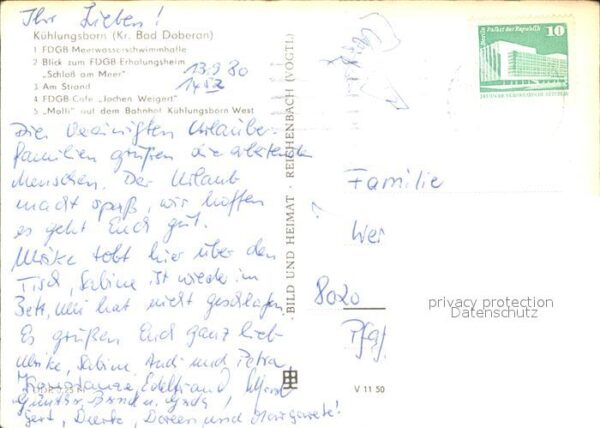 Ihr Lieben!
Kühlungsborn (Kr. Bad Doberan)
1 FDGB Meerwasserschwimmhalle
2 Blick zum FDGB-Erholungsheim
„Schloß am Meer"
3 Am Strand
4 FDGB Cafe „Jochen Weigert"
5 „Molli" auf dem Bahnhof Kühlungsborn West
13.9.80
Die Vereinigten Urlauber-
familien grüßen die arbeitenden
Menschen. Der Urlaub
macht spaß, wir hoffen
es geht Euch gut.
Ulrike tobt hier über den
Tisch, Sabine ist wieder im
Bett, hat nicht geschlafen.
Es grüßen Euch ganz lieb
Ulrike, Sabine, Andi und Petra
Konstanze, Edeltraud
Günther, Bernd u.
Gert, Doerte, Doreen und Margarete!
V 11 50
BILD UND HEIMAT · REICHENBACH (VOGTL)
Berlin Palast der Republik
10
DEUTSCHE DEMOKRATISCHE REPUBLIK
Familie
8020
privacy protection
Datenschutz